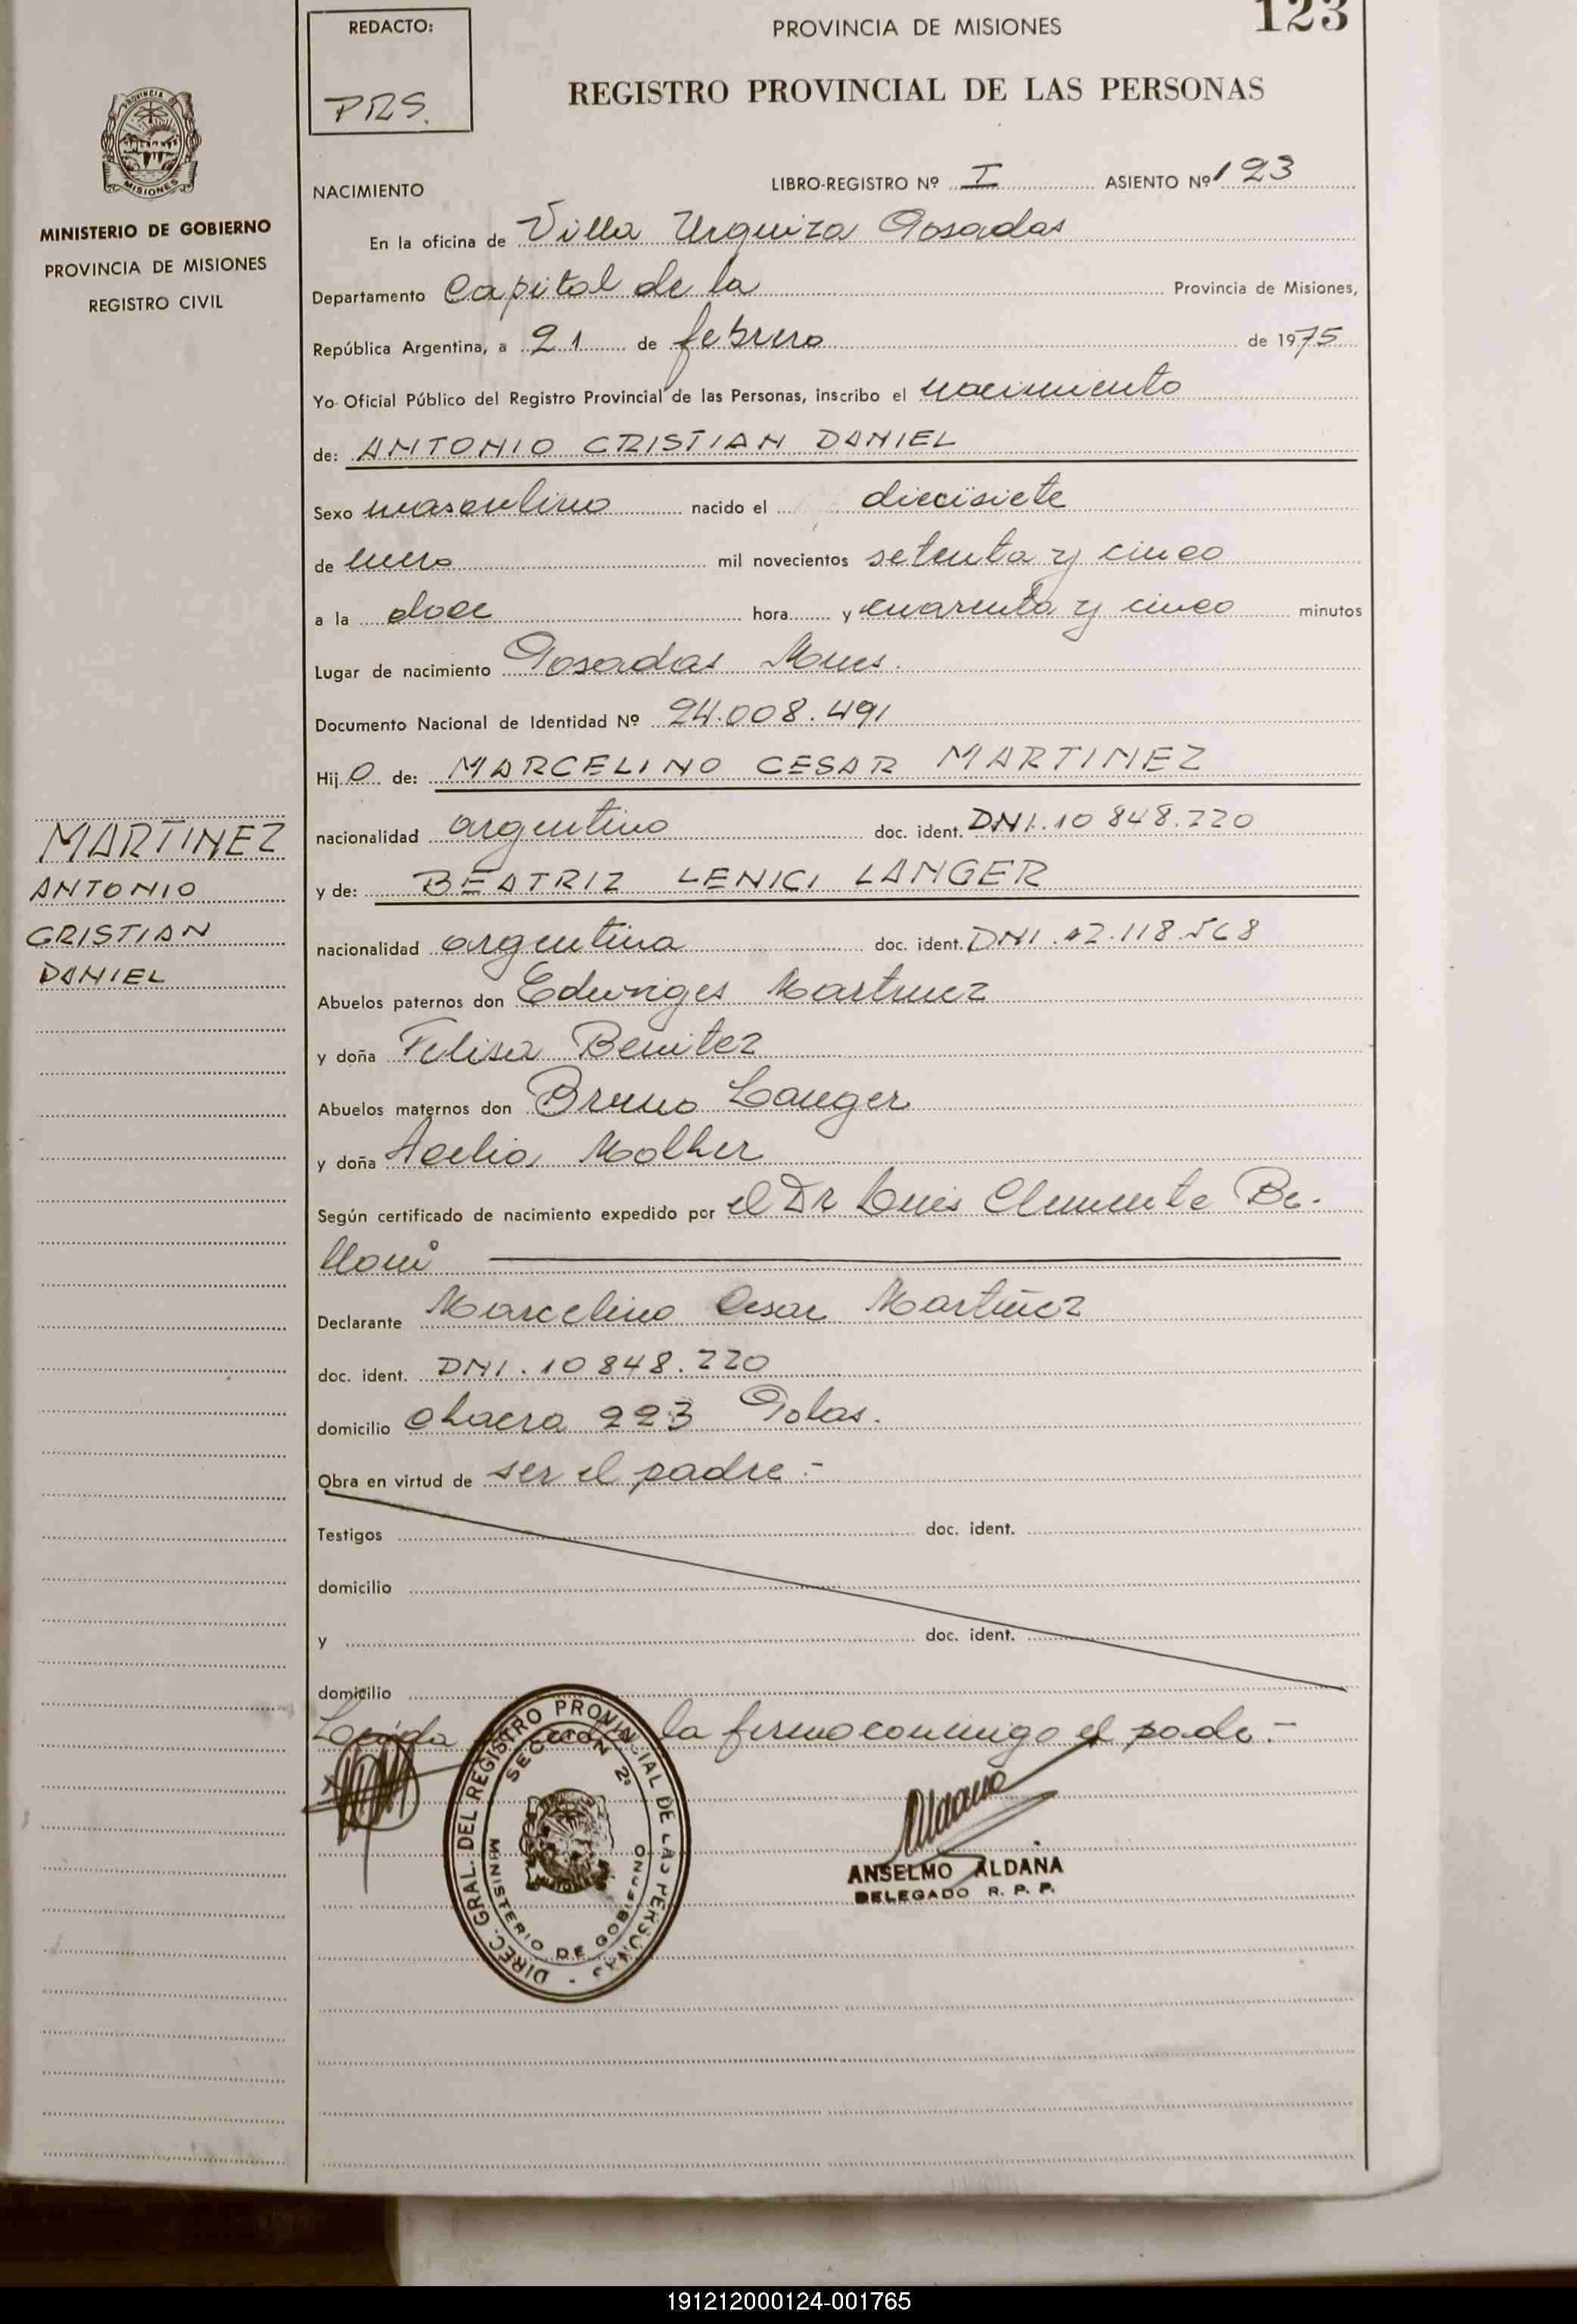 REDACTO:
PROVINCIA DE MISIONES
123
PRS.
REGISTRO PROVINCIAL DE LAS PERSONAS
PROVINCIA DE
MISIONES
NACIMIENTO
LIBRO-REGISTRO Nº I ASIENTO Nº 123
MINISTERIO DE GOBIERNO
PROVINCIA DE MISIONES
REGISTRO CIVIL
En la oficina de Villa Urquiza Posadas
Departamento Capital de la Provincia de Misiones,
República Argentina, a 21 de febrero de 1975
Yo Oficial Público del Registro Provincial de las Personas, inscribo el nacimiento
de: ANTONIO CRISTIAN DANIEL
Sexo masculino nacido el diecisiete
de enero mil novecientos setenta y cinco
a la doce hora y cuarenta y cinco minutos
Lugar de nacimiento Posadas Mnes.
Documento Nacional de Identidad Nº 24.008.491
Hijo de: MARCELINO CESAR MARTINEZ
nacionalidad argentino doc. ident. DNI.10 848.220
y de: BEATRIZ LENICI LANGER
nacionalidad argentina doc. ident. DNI.12.118.568
MARTINEZ
ANTONIO
CRISTIAN
DANIEL
Abuelos paternos don Eduviges Martinez
y doña Felisa Benitez
Abuelos maternos don Bruno Langer
y doña Acelia Molher
Según certificado de nacimiento expedido por el Dr Luis Clemente Be-
lloni
Declarante Marcelino Cesar Martinez
doc. ident. DNI.10 848.220
domicilio chacra 223 Pdas.
Obra en virtud de ser el padre.-
Testigos doc. ident.
domicilio
y doc. ident.
domicilio
Leída la firma conmigo el padre.-
DIREC. GRAL. DEL REGISTRO PROVINCIAL DE LAS PERSONAS -
SECCION 2ª
MINISTERIO DE GOBIERNO
Aldana
ANSELMO ALDANA
DELEGADO R. P. P.
191212000124-001765